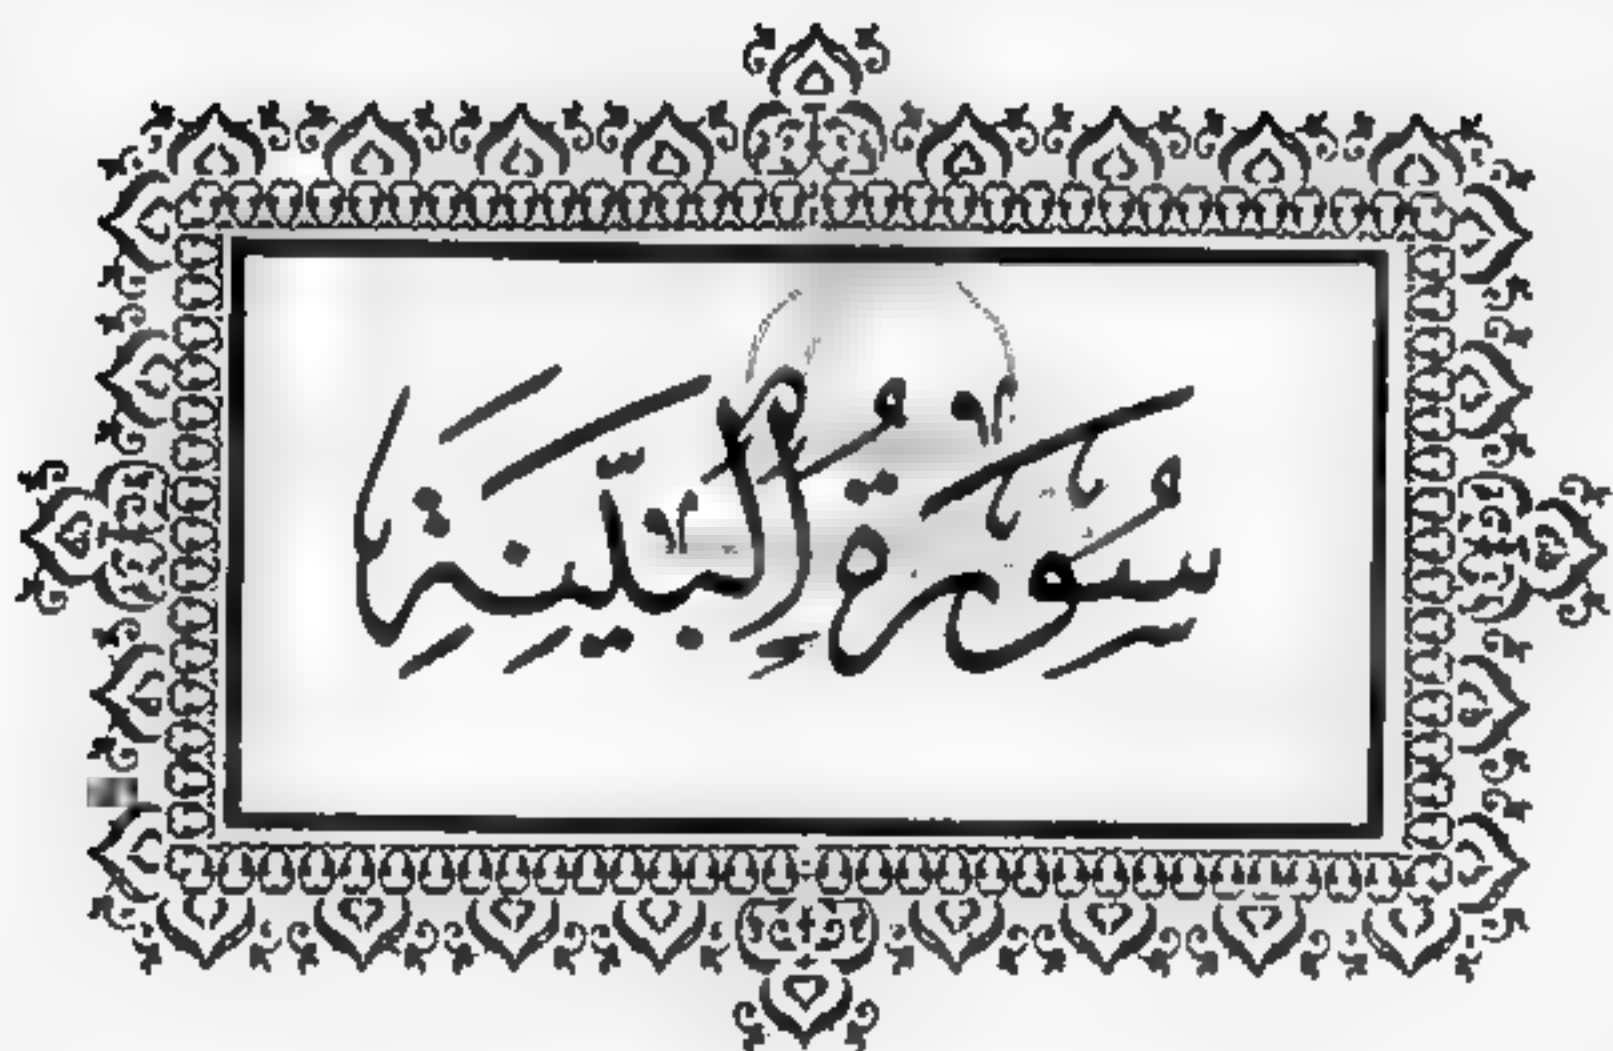 سُورَةُ الْبَيِّنَةِ